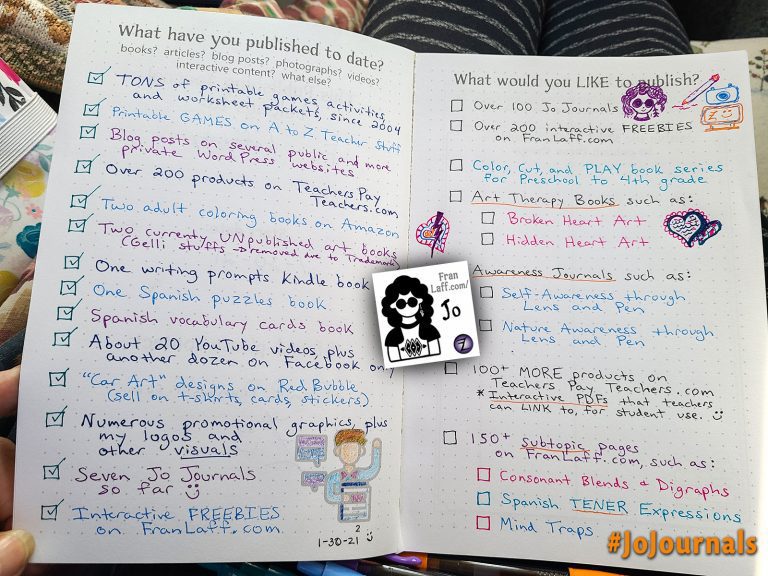 What have you published to date?
books? articles? blog posts? photographs? videos?
interactive content? what else?
TONS of printable games, activities,
and worksheet packets, since 2004
Printable GAMES on A to Z Teacher Stuff
Blog posts on several public and more
private WordPress websites
Over 200 products on TeachersPay
Teachers.com
Two adult coloring books on Amazon
Two currenty UNpublished art books
(Gelli stuffs removed due to Trademark)
One writing prompts Kindle book
One Spanish puzzles book
Spanish vocabulary cards book
About 20 YouTube videos, plus
another dozen on Facebook only
"Car Art" designs on Red Bubble
(sell on t-shirts, cards, stickers)
Numerous promotional graphics, plus
my logos and
other visuals
Seven Jo Journals
so far
Interactive FREEBIES
on FranLaff.com
2
1-30-21
What would you LIKE to publish?
Over 100 Jo Journals
Over 200 interactive FREEBIES
on FranLaff.com
Color, Cut, and PLAY book series
for Preschool to 4th grade
Art Therapy Books such as:
Broken Heart Art
Hidden Heart Art
Awareness Journals such as:
Self-Awareness through
Lens and Pen
Nature Awareness through
Lens and Pen
100+ MORE products on
Teachers Pay Teachers.com
* Interactive PDFs that teachers
can LINK to, for student use.
150+ subtopic pages
on FranLaff.com, such as:
Consonant Blends & Digraphs
Spanish TENER Expressions
Mind Traps
Fran
Laff.com/
Jo
Z
#JoJournals